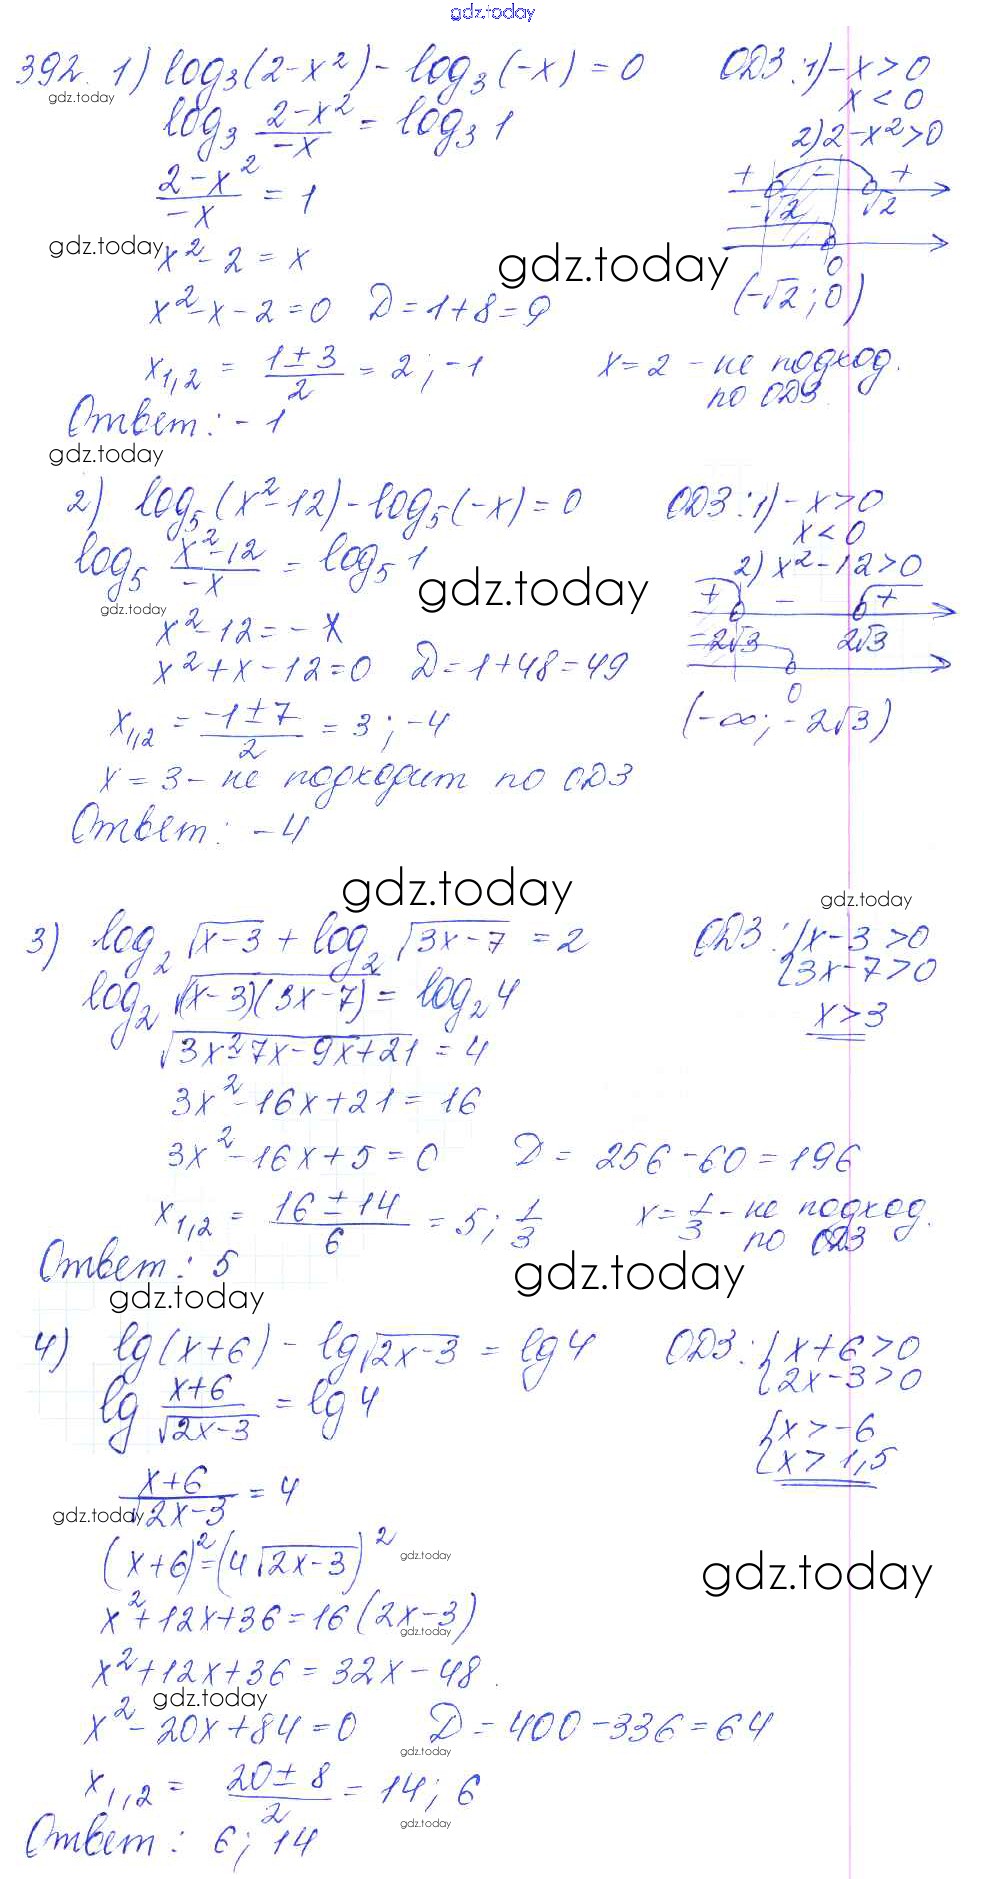 gdz.today
392. 1) log₃(2-x²) - log₃(-x) = 0 ОДЗ: 1) -x>0
gdz.today
x<0
log₃ (2-x²)/(-x) = log₃ 1
2) 2-x²>0
(2-x²)/(-x) = 1
+ - +
-√2 √2
gdz.today
x²-2 = x
gdz.today
0
x²-x-2=0 D=1+8=9
(-√2; 0)
x₁,₂ = (1±3)/2 = 2; -1 x=2 - не подход.
по ОДЗ.
Ответ: -1
gdz.today
2) log₅(x²-12) - log₅(-x) = 0 ОДЗ: 1) -x>0
x<0
log₅ (x²-12)/(-x) = log₅ 1
2) x²-12>0
gdz.today
+ - +
gdz.today
x²-12 = -x
-2√3 2√3
x²+x-12=0 D=1+48=49
0
x₁,₂ = (-1±7)/2 = 3; -4
(-∞; -2√3)
x = 3 - не подходит по ОДЗ
Ответ: -4
gdz.today
gdz.today
3) log₂ √(x-3) + log₂ √(3x-7) = 2 ОДЗ: {x-3>0
{3x-7>0
log₂ √((x-3)(3x-7)) = log₂ 4
x>3
√(3x²-7x-9x+21) = 4
3x²-16x+21 = 16
3x²-16x+5 = 0 D = 256-60 = 196
x₁,₂ = (16±14)/6 = 5; 1/3 x=1/3 - не подход.
по ОДЗ
Ответ: 5
gdz.today
gdz.today
4) lg(x+6) - lg√(2x-3) = lg4 ОДЗ: {x+6>0
{2x-3>0
lg (x+6)/√(2x-3) = lg4
{x>-6
{x>1,5
(x+6)/√(2x-3) = 4
gdz.today
(x+6)² = (4√(2x-3))²
gdz.today
gdz.today
x²+12x+36 = 16(2x-3)
gdz.today
x²+12x+36 = 32x-48.
gdz.today
x²-20x+84=0 D=400-336=64
gdz.today
x₁,₂ = (20±8)/2 = 14; 6
gdz.today
Ответ: 6; 14